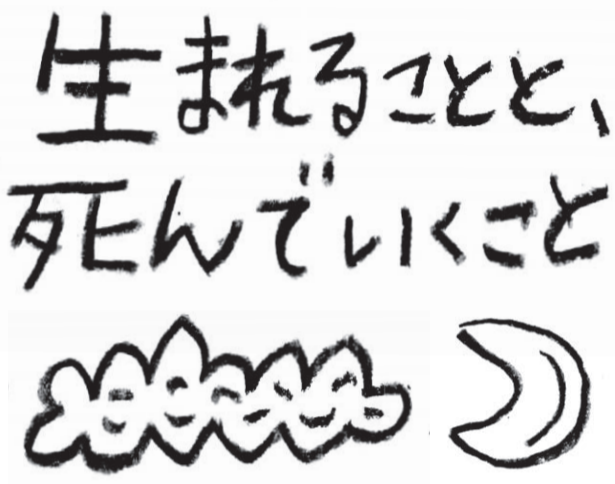 生まれることと、
死んでいくこと